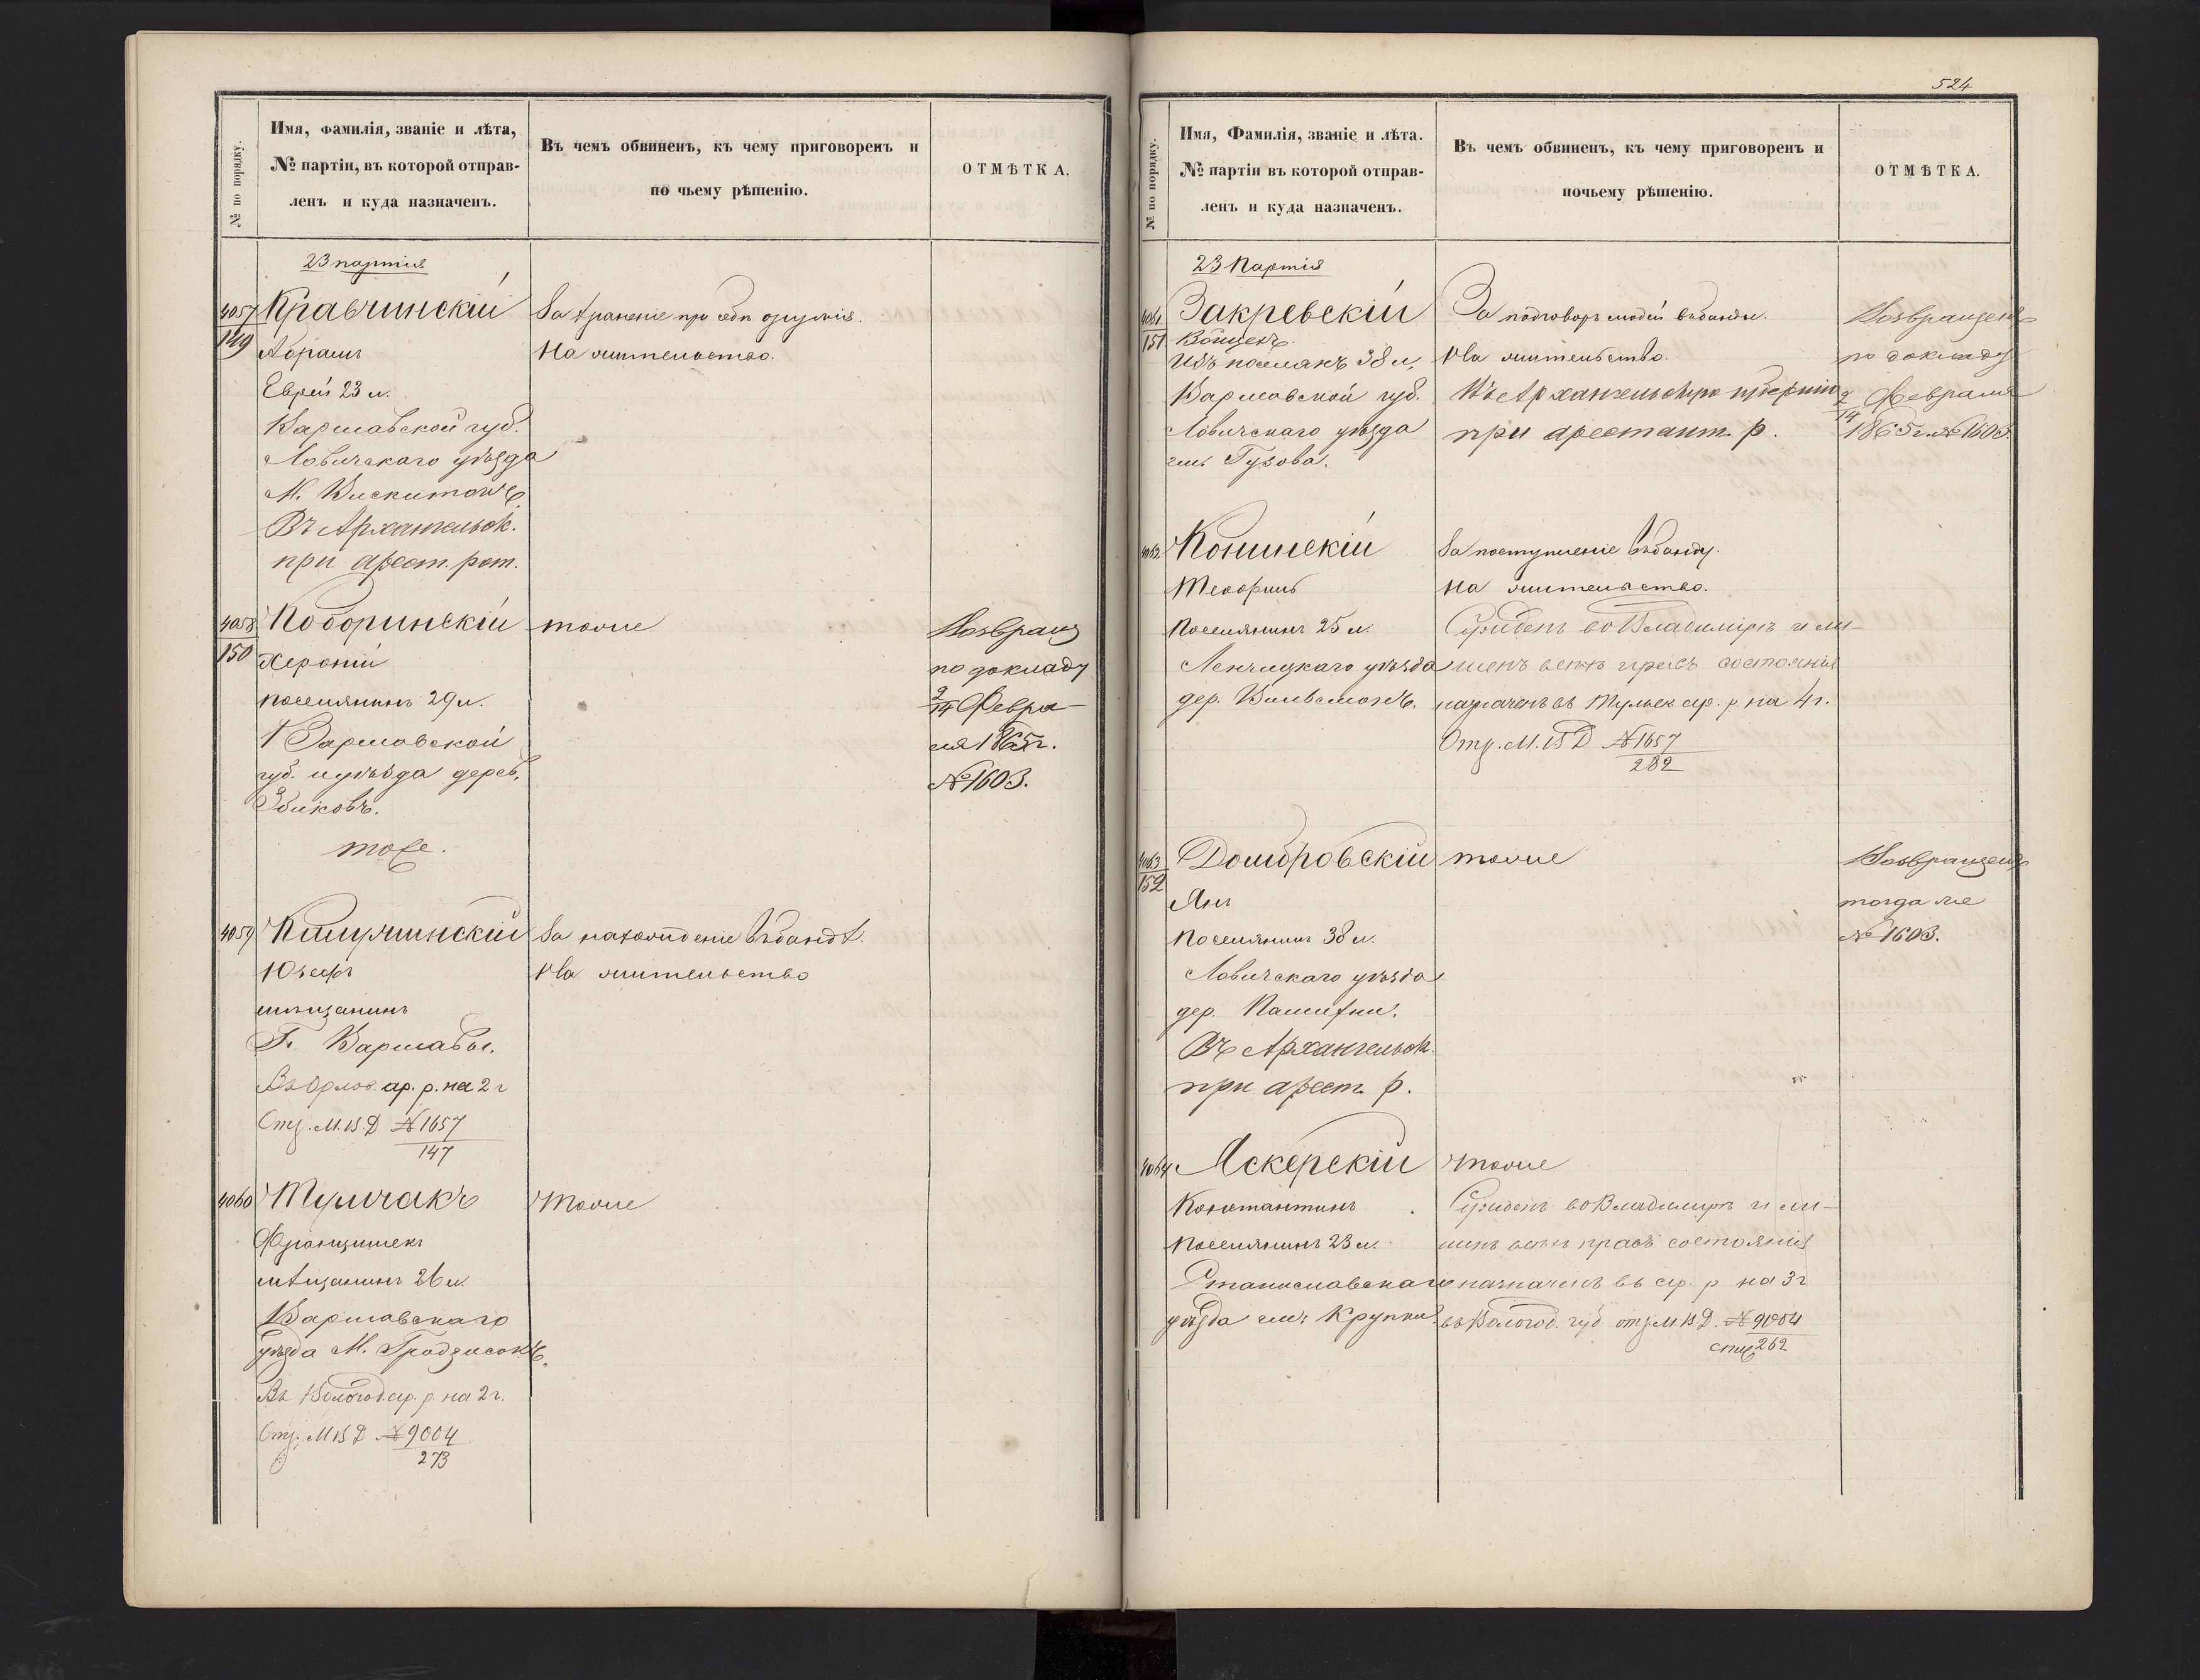 № по порядку.
Имя, фамилія, званіе и лѣта,
№ партіи, въ которой отправ-
ленъ и куда назначенъ.
Въ чемъ обвиненъ, къ чему приговоренъ и
по чьему рѣшенію.
ОТМѢТКА.
23 партія
4057
149
Кравчинскій
Абрамъ
Еврей 23 л.
Варшавской губ.
Ловичскаго уѣзда
М. Вискитокъ
Въ Архангельск.
при арест. рот.
За храненіе оружія.
На жительство.
4058
150
Подоринскій
Хероній
поселянинъ 29 л.
Варшавской
губ. и уѣзда дерев.
Збиковъ.
тоже.
тоже
Возвращ
по докладу
2/14 Февра
ля 1865 г.
№ 1603.
4059
Юзефъ
мѣщанинъ
Г. Варшавы.
Въ Орлов. ар. р. на 2 г
Отз. М. В. Д № 1657
147
За нахожденіе въ бандѣ.
На жительство
4060
Тулчакъ
Францишекъ
мѣщанинъ 26 л.
Варшавскаго
уѣзда М. Гродзискъ.
Въ Вологод. ар. р. на 2 г.
Отз. М В Д № 9004
273
тоже
524
№ по порядку.
Имя, Фамилія, званіе и лѣта.
№ партіи въ которой отправ-
ленъ и куда назначенъ.
Въ чемъ обвиненъ, къ чему приговоренъ и
почьему рѣшенію.
ОТМѢТКА.
23 Партія
4061
151
Закревскій
Войцехъ.
Изъ поселянъ 38 л,
Варшавской губ.
Ловичскаго уѣзда
гм. Гузова.
За подговоръ людей въ банды.
На жительство.
Въ Архангельскую губернію
при арестант. р.
Возвращенъ
по докладу
2/14 Февраля
1865 г. № 1603.
4062
Конинскій
Теофиль
Поселянинъ 25 л.
Ленчицкаго уѣзда
дер.
За поступленіе въ банду.
На жительство.
Сужденъ во Владимірѣ и ли-
шенъ всѣхъ правъ состоянія
назначенъ въ Тульск ар. р на 4 г.
Отз. М. В Д № 1657
282
4063
152
Домбровскій
Янъ
Поселянинъ 38 л.
Ловичскаго уѣзда
дер.
Въ Архангельск.
при арест. р.
тоже
Возвращенъ
тогда же
№ 1603.
4064
Аскерскій
Константинъ
Поселянинъ 23 л.
Станиславскаго
уѣзда гм. Крупки
тоже
Сужденъ во Владимірѣ и ли-
шенъ всѣхъ правъ состоянія
назначенъ въ ар. р на 3 г
въ Вологод. губ отз М. В Д. № 9004
262